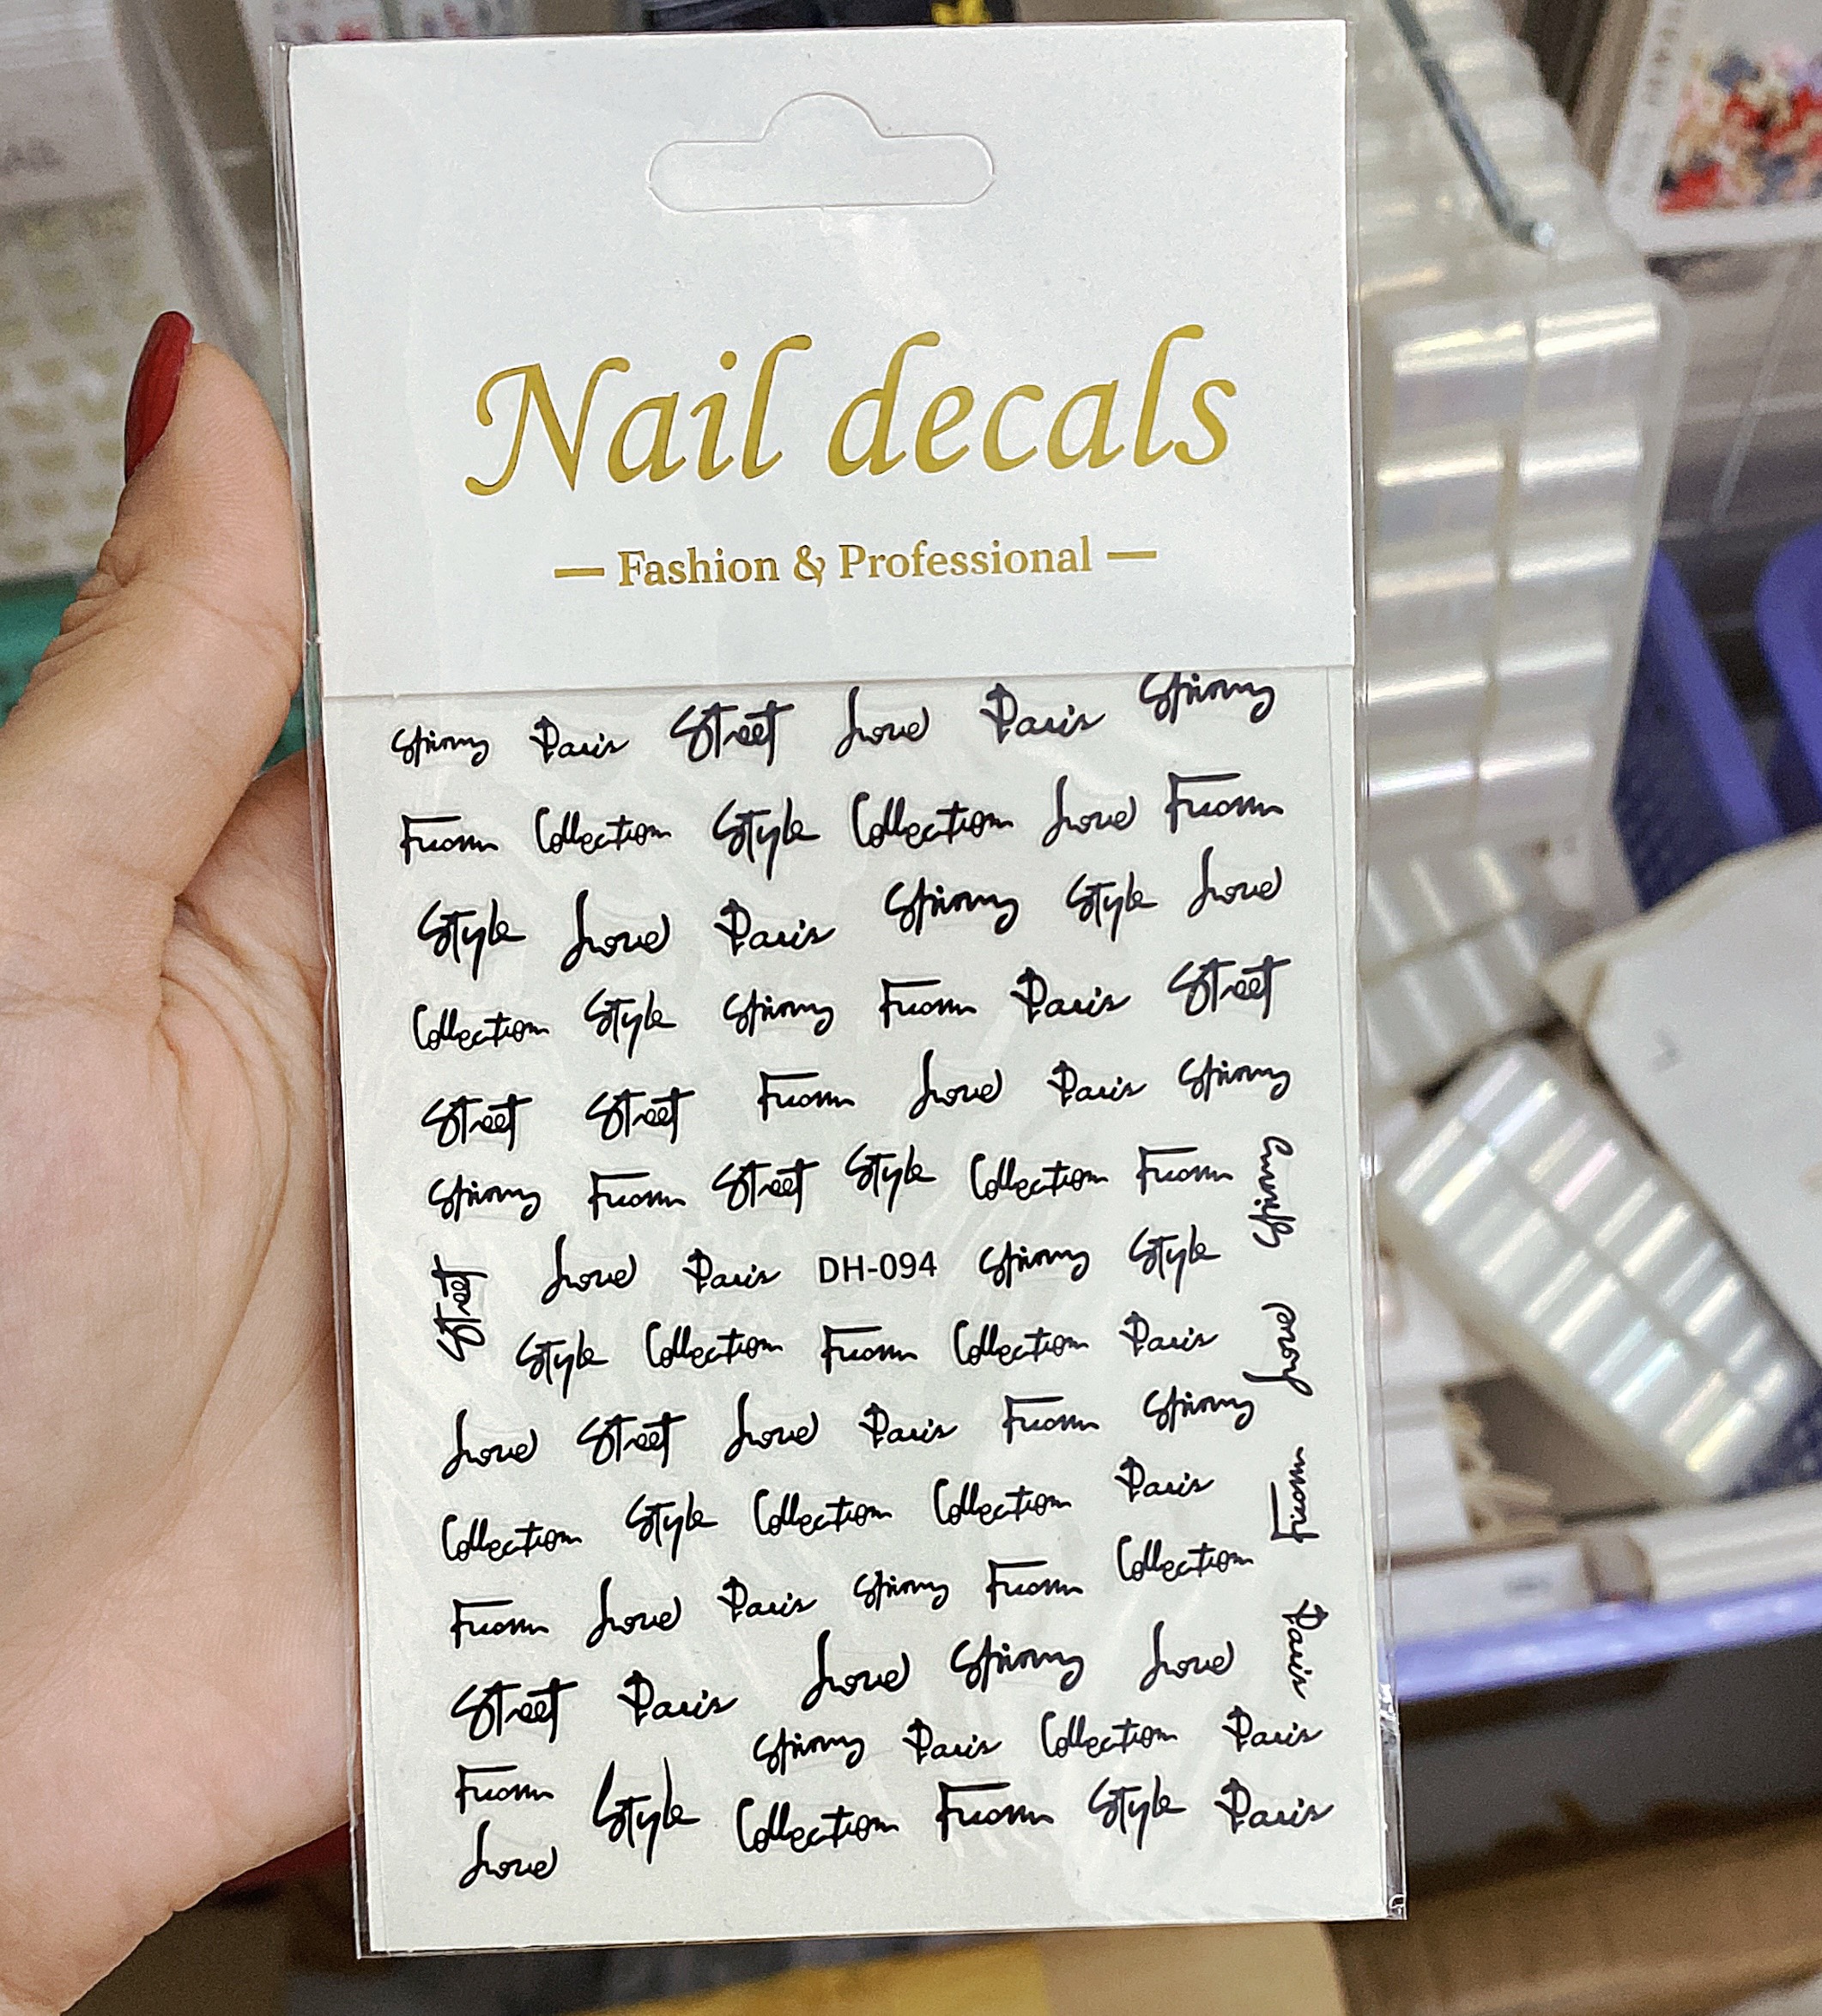 Nail decals
— Fashion & Professional —
Stirmy Paris Street Love Paris Stirmy
Fuomn Collection Style Collection Love Fuomn
Style Love Paris Stirmy Style Love
Collection Style Stirmy Fuomn Paris Street
Street Street Fuomn Love Paris Stirmy
Stirmy Fuomn Street Style Collection Fuomn Stirmy
Street Love Paris DH-094 Stirmy Style
Style Collection Fuomn Collection Paris Love
Love Street Love Paris Fuomn Stirmy
Collection Style Collection Collection Paris Fuomn
Fuomn Love Paris Stirmy Fuomn Collection
Street Paris Love Stirmy Love Paris
Stirmy Paris Collection Paris
Fuomn Style Collection Fuomn Style Paris
Love